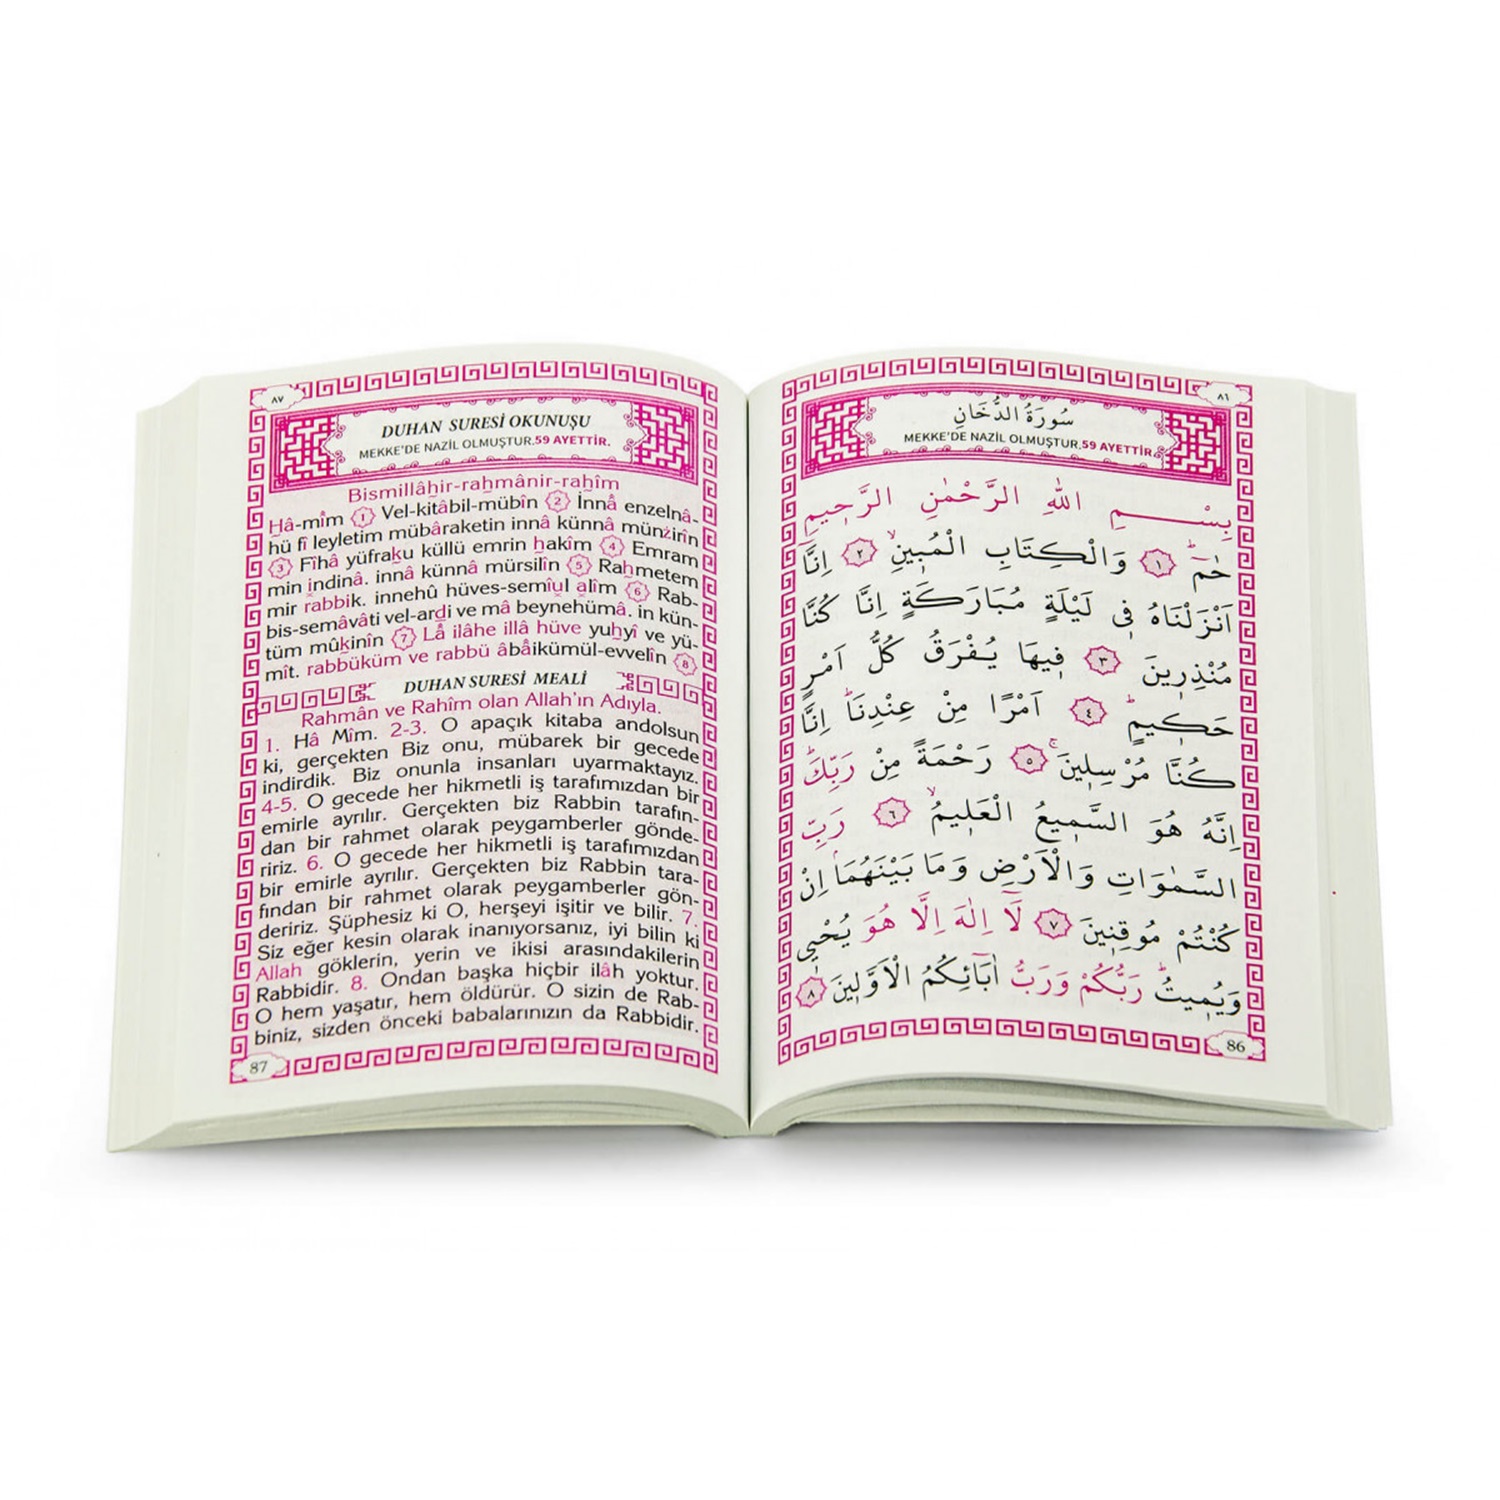 ٨٧
DUHAN SURESİ OKUNUŞU
MEKKE'DE NAZİL OLMUŞTUR.59 AYETTİR.
Bismillâhir-rahmânir-rahîm
Hâ-mîm 1 Vel-kitâbil-mübîn 2 İnnâ enzelnâ-
hü fî leyletim mübâraketin innâ künnâ münzirîn
3 Fîhâ yüfraku küllü emrin hakîm 4 Emram
min indinâ. innâ künnâ mürsilîn 5 Rahmetem
mir rabbik. innehû hüves-semîul alîm 6 Rab-
bis-semâvâti vel-ardi ve mâ beynehümâ. in kün-
tüm mûkinîn 7 Lâ ilâhe illâ hüve yuhyî ve yü-
mît. rabbüküm ve rabbü âbâikümül-evvelîn 8
DUHAN SURESİ MEALİ
Rahmân ve Rahîm olan Allah'ın Adıyla.
1. Hâ Mîm. 2-3. O apaçık kitaba andolsun
ki, gerçekten Biz onu, mübarek bir gecede
indirdik. Biz onunla insanları uyarmaktayız.
4-5. O gecede her hikmetli iş tarafımızdan bir
emirle ayrılır. Gerçekten biz Rabbin tarafın-
dan bir rahmet olarak peygamberler gönde-
ririz. 6. O gecede her hikmetli iş tarafımızdan
bir emirle ayrılır. Gerçekten biz Rabbin tara-
fından bir rahmet olarak peygamberler gön-
deririz. Şüphesiz ki O, herşeyi işitir ve bilir. 7.
Siz eğer kesin olarak inanıyorsanız, iyi bilin ki
Allah göklerin, yerin ve ikisi arasındakilerin
Rabbidir. 8. Ondan başka hiçbir ilâh yoktur.
O hem yaşatır, hem öldürür. O sizin de Rab-
biniz, sizden önceki babalarınızın da Rabbidir.
87
٨٦
سُورَةُ الدُّخَانِ
MEKKE'DE NAZİL OLMUŞTUR.59 AYETTİR.
بِسْمِ اللهِ الرَّحْمٰنِ الرَّحِيمِ
حٰمٓ ١ وَالْكِتَابِ الْمُبِينِ ٢ اِنَّٓا
اَنْزَلْنَاهُ فِى لَيْلَةٍ مُبَارَكَةٍ اِنَّا كُنَّا
مُنْذِرِينَ ٣ فِيهَا يُفْرَقُ كُلُّ اَمْرٍ
حَكِيمٍ ٤ اَمْرًا مِنْ عِنْدِنَا اِنَّا
كُنَّا مُرْسِلِينَ ٥ رَحْمَةً مِنْ رَبِّكَ
اِنَّهُ هُوَ السَّمِيعُ الْعَلِيمُ ٦ رَبِّ
السَّمٰوَاتِ وَالْاَرْضِ وَمَا بَيْنَهُمَا اِنْ
كُنْتُمْ مُوقِنِينَ ٧ لَٓا اِلٰهَ اِلَّا هُوَ يُحْيِى
وَيُمِيتُ رَبُّكُمْ وَرَبُّ اٰبَٓائِكُمُ الْاَوَّلِينَ ٨
86